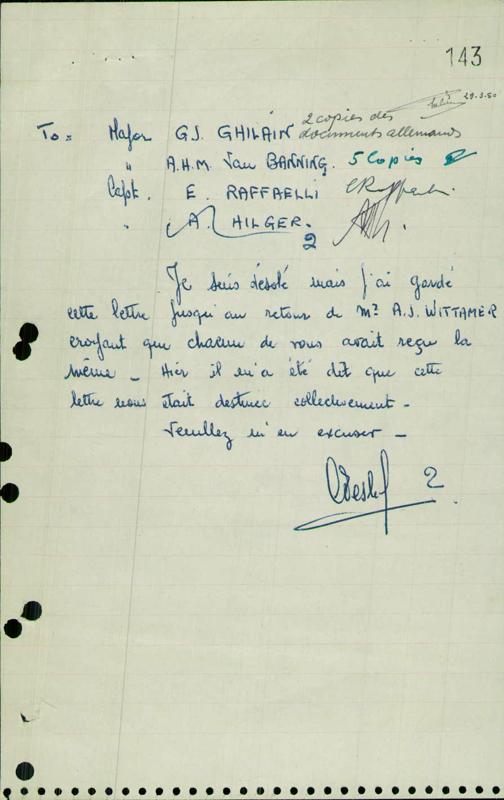 143
29.3.50
2 copies des
To: Major GJ. GHILAIN documents allemands
" A.H.M. Van BANNING. 5 Copies
Capt. E. RAFFAELLI
" A. HILGER.
2
Je suis désolé mais j'ai gardé
cette lettre jusqu'au retour de Mr A.J. WITTAMER
croyant que chacun de vous avait reçu la
même _ Hier il m'a été dit que cette
lettre nous était destinée collectivement _
Veuillez m'en excuser _
2